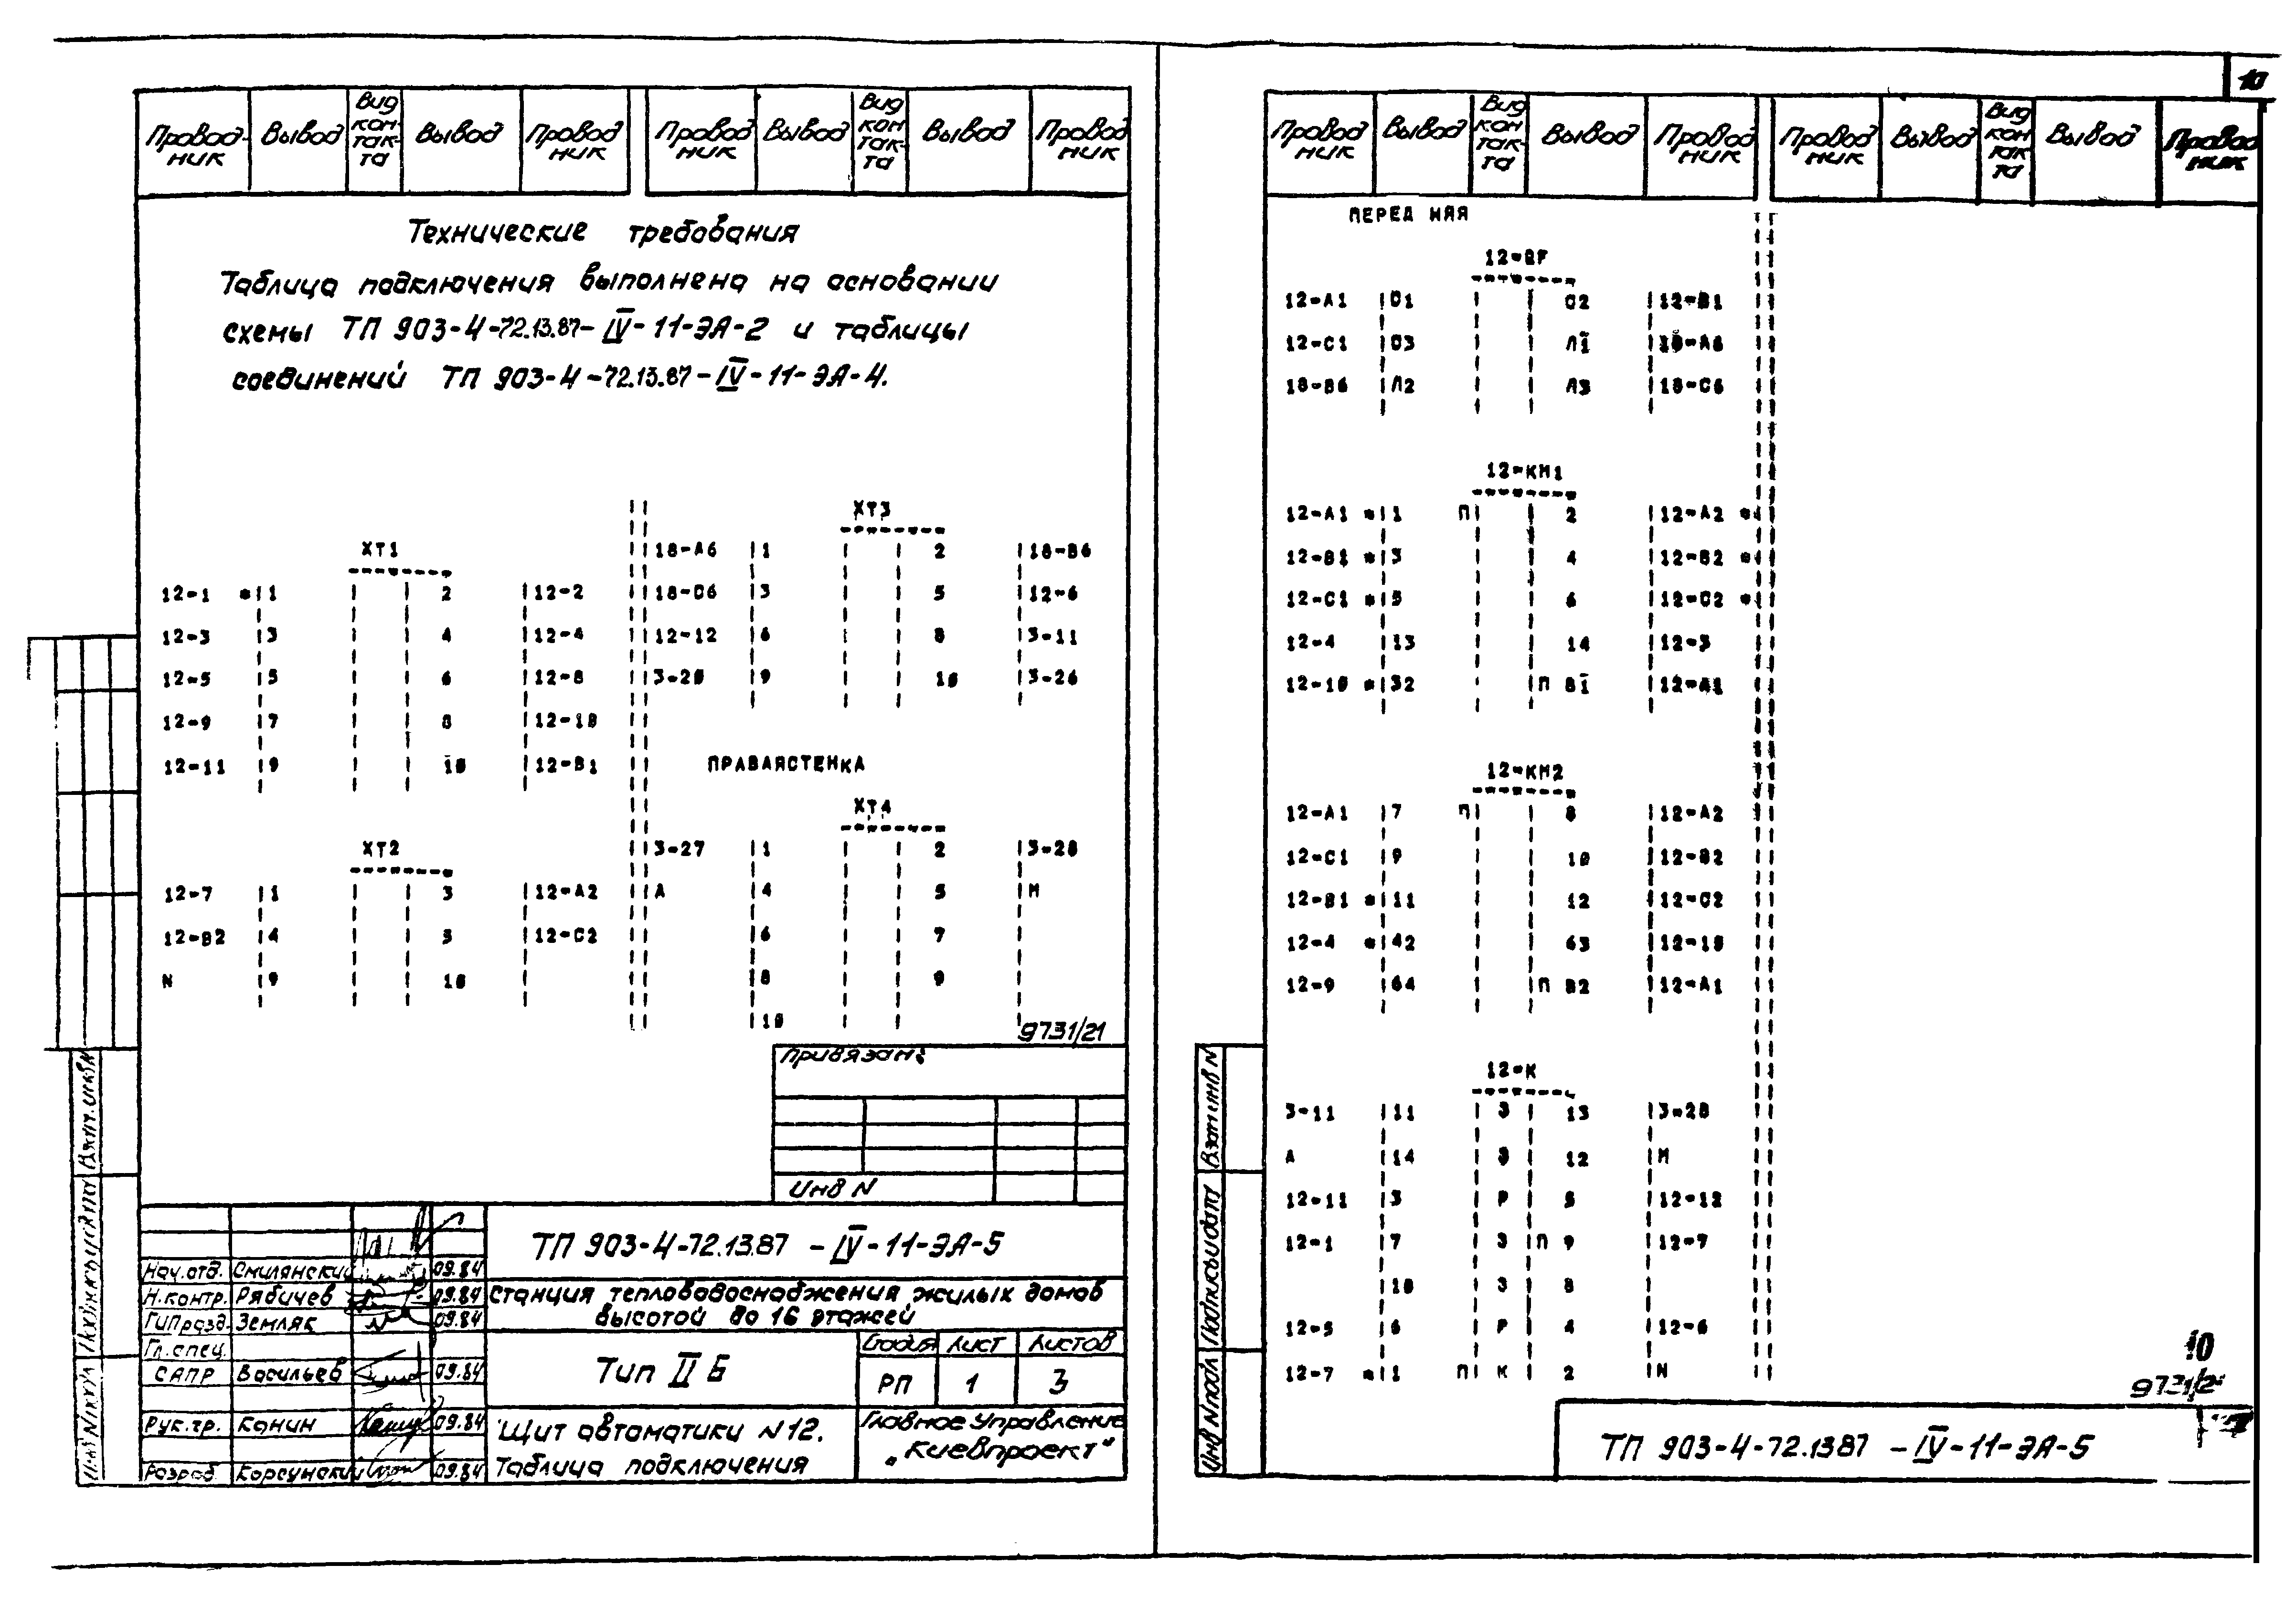 10
Провод-ник Вывод Вид кон-так-та Вывод Провод ник Провод ник Вывод Вид кон так-та Вывод Провод ник
Технические требования
Таблица подключения выполнена на основании
схемы ТП 903-4-72.13.87-IV-11-ЭА-2 и таблицы
соединений ТП 903-4-72.13.87-IV-11-ЭА-4.
ХТ1
12-1 *1 2 12-2
12-3 3 4 12-4
12-5 5 6 12-8
12-9 7 8 12-10
12-11 9 10 12-В1
ХТ2
12-7 1 3 12-А2
12-В2 4 5 12-С2
N 9 10
ХТ3
18-А6 1 2 18-В6
18-С6 3 5 12-6
12-12 6 8 3-11
3-20 9 10 3-26
ПРАВАЯСТЕНКА
ХТ4
3-27 1 2 3-28
А 4 5 М
6 7
8 9
10
9731/21
Привязан:
Инв N
ТП 903-4-72.13.87 -IV-11-ЭА-5
Нач.отд. Смилянский 09.84
Н.контр. Рябичев 09.84
ГИПразд. Земляк 09.84
Гл.спец.
САПР Васильев 09.84
Рук.гр. Канин 09.84
Разраб. Корсунский 09.84
Станция тепловодоснабжения жилых домов
высотой до 16 этажей
Тип II Б
Стадия Лист Листов
РП 1 3
Щит автоматики N12.
Таблица подключения
Главное Управление
„Киевпроект"
Провод ник Вывод Вид кон так-та Вывод Провод ник Провод ник Вывод Вид кон так та Вывод Провод ник
ПЕРЕД НЯЯ
12-QF
12-А1 С1 С2 12-В1
12-С1 С3 Л1 18-А6
18-В6 Л2 Л3 18-С6
12-КМ1
12-А1 *1 П 2 12-А2 *
12-В1 *3 4 12-В2 *
12-С1 *5 6 12-С2 *
12-4 13 14 12-3
12-10 *32 П В1 12-А1
12-КМ2
12-А1 7 П 8 12-А2
12-С1 9 10 12-В2
12-В1 *11 12 12-С2
12-4 *42 63 12-10
12-9 64 П В2 12-А1
12-К
3-11 11 З 13 3-28
А 14 З 12 М
12-11 3 Р 5 12-12
12-1 7 З П 9 12-7
10 З 8
12-5 6 Р 4 12-6
12-7 *1 П К 2 N
10
9731/2
Инв N подл Подпись и дата Взам инв N
ТП 903-4-72.1387 -IV-11-ЭА-5